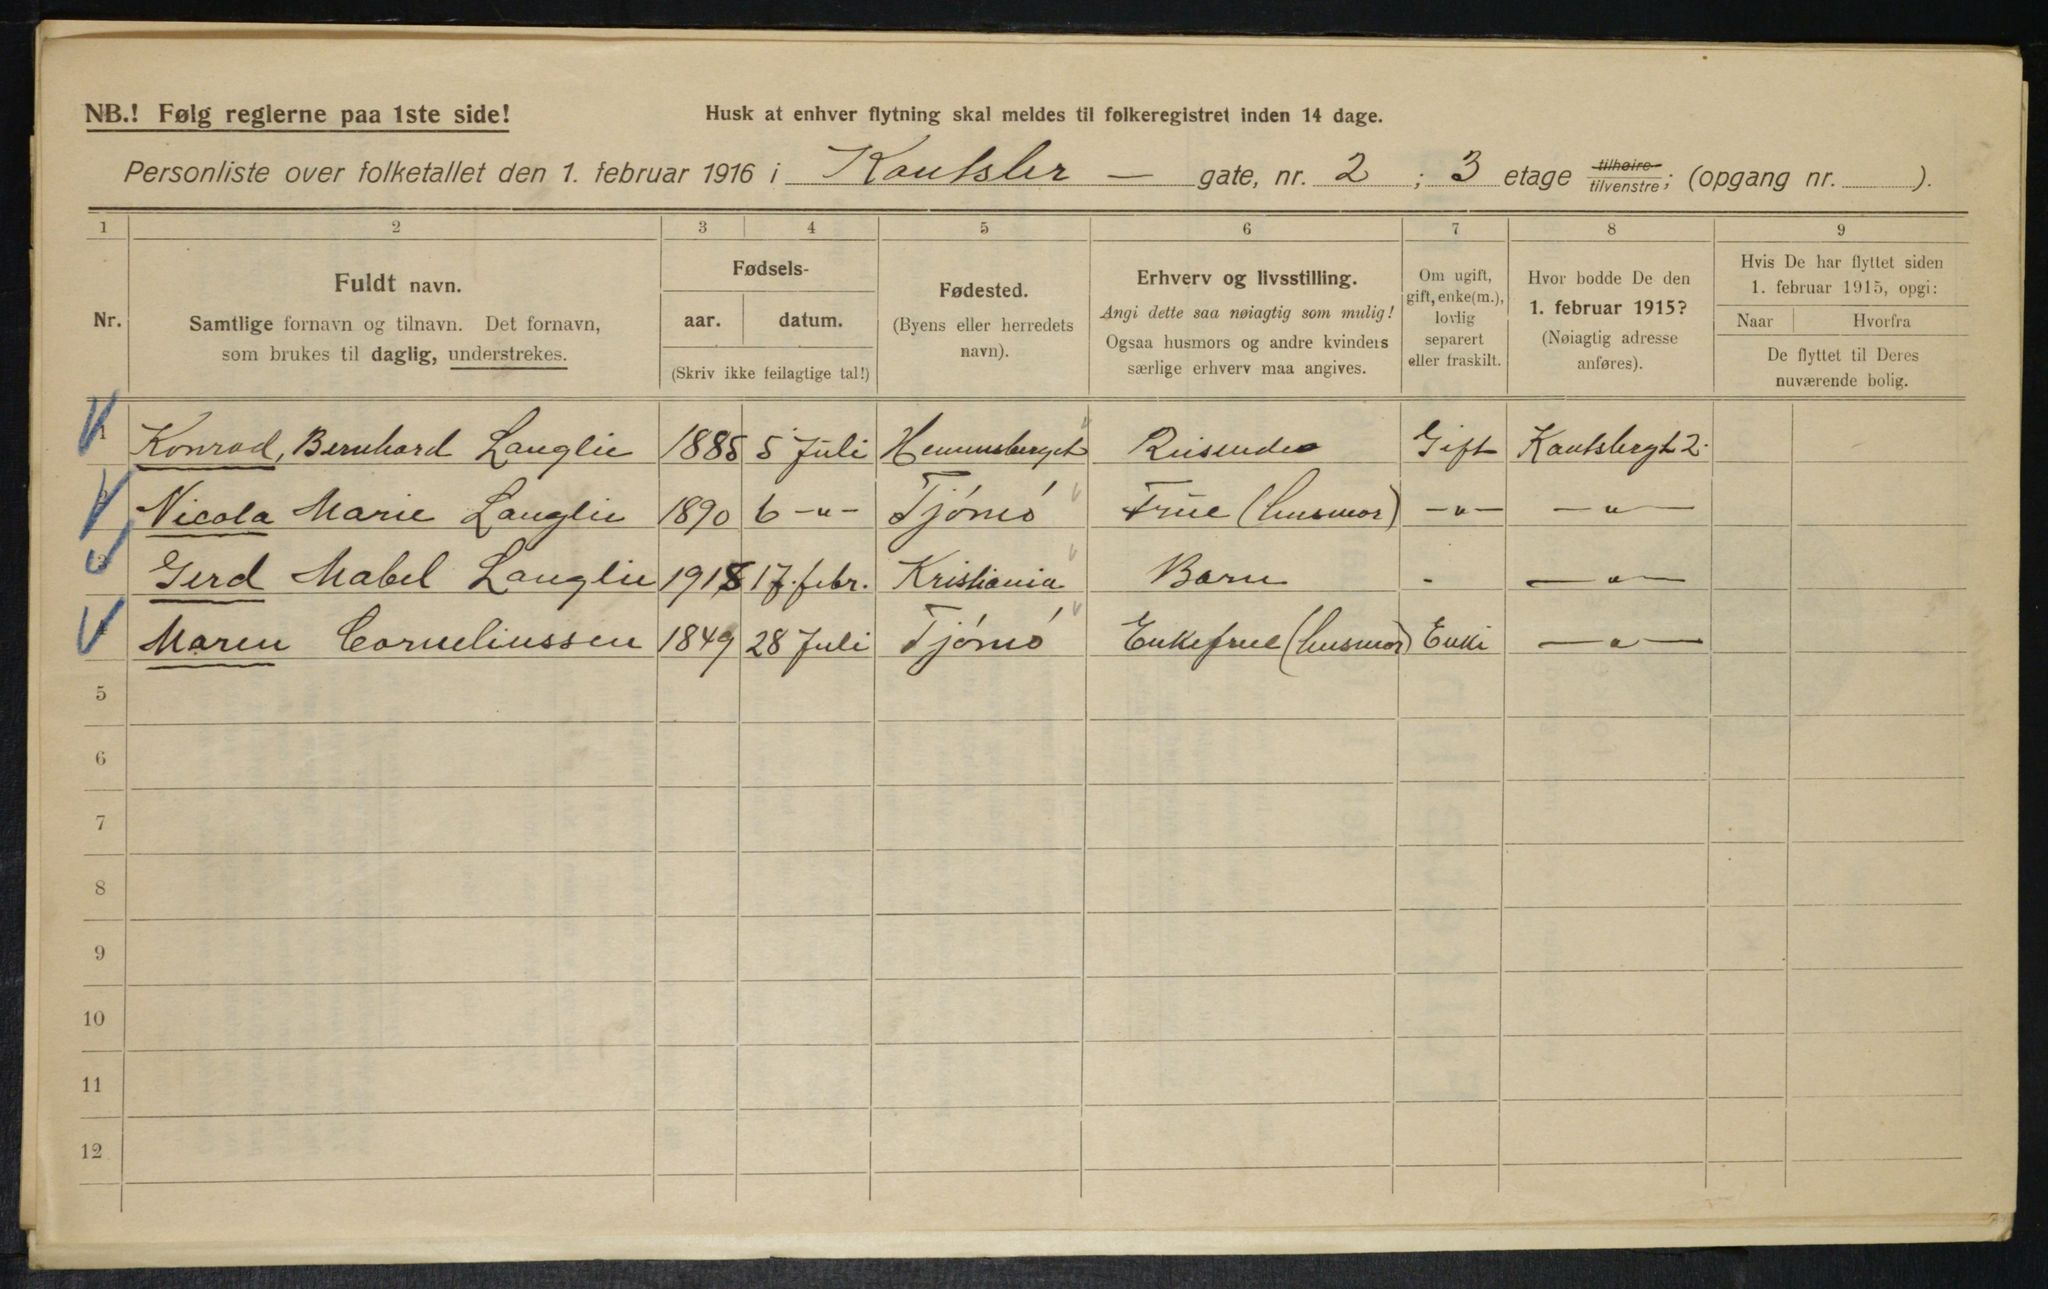 NB.! Følg reglerne paa 1ste side! Husk at enhver flytning skal meldes til folkeregistret inden 14 dage.
Personliste over folketallet den 1. februar 1916 i Kantsler — gate, nr. 2 ; 3 etage tilhøire/tilvenstre; (opgang nr. ).
1 2 3 4 5 6 7 8 9
Nr.
Fuldt navn.
Samtlige fornavn og tilnavn. Det fornavn,
som brukes til daglig, understrekes.
Fødsels-
aar. datum.
(Skriv ikke feilagtige tal!)
Fødested.
(Byens eller herredets
navn).
Erhverv og livsstilling.
Angi dette saa nøiagtig som mulig!
Ogsaa husmors og andre kvinders
særlige erhverv maa angives.
Om ugift,
gift, enke(m.),
lovlig
separert
eller fraskilt.
Hvor bodde De den
1. februar 1915?
(Nøiagtig adresse
anføres).
Hvis De har flyttet siden
1. februar 1915, opgi:
Naar Hvorfra
De flyttet til Deres
nuværende bolig.
1 Konrad, Bernhard Langlie 1885 5 Juli Reisende Gift
2 Nicola Marie Langlie 1890 6 -"- Tjømø Frue (husmor) -"- -"-
3 Gerd Mabel Langlie 1915 17. febr. Kristiania Barn - -"-
4 Maren Corneliussen 1849 28 Juli Tjømø Enkefrue (husmor) Enke -"-
5
6
7
8
9
10
11
12